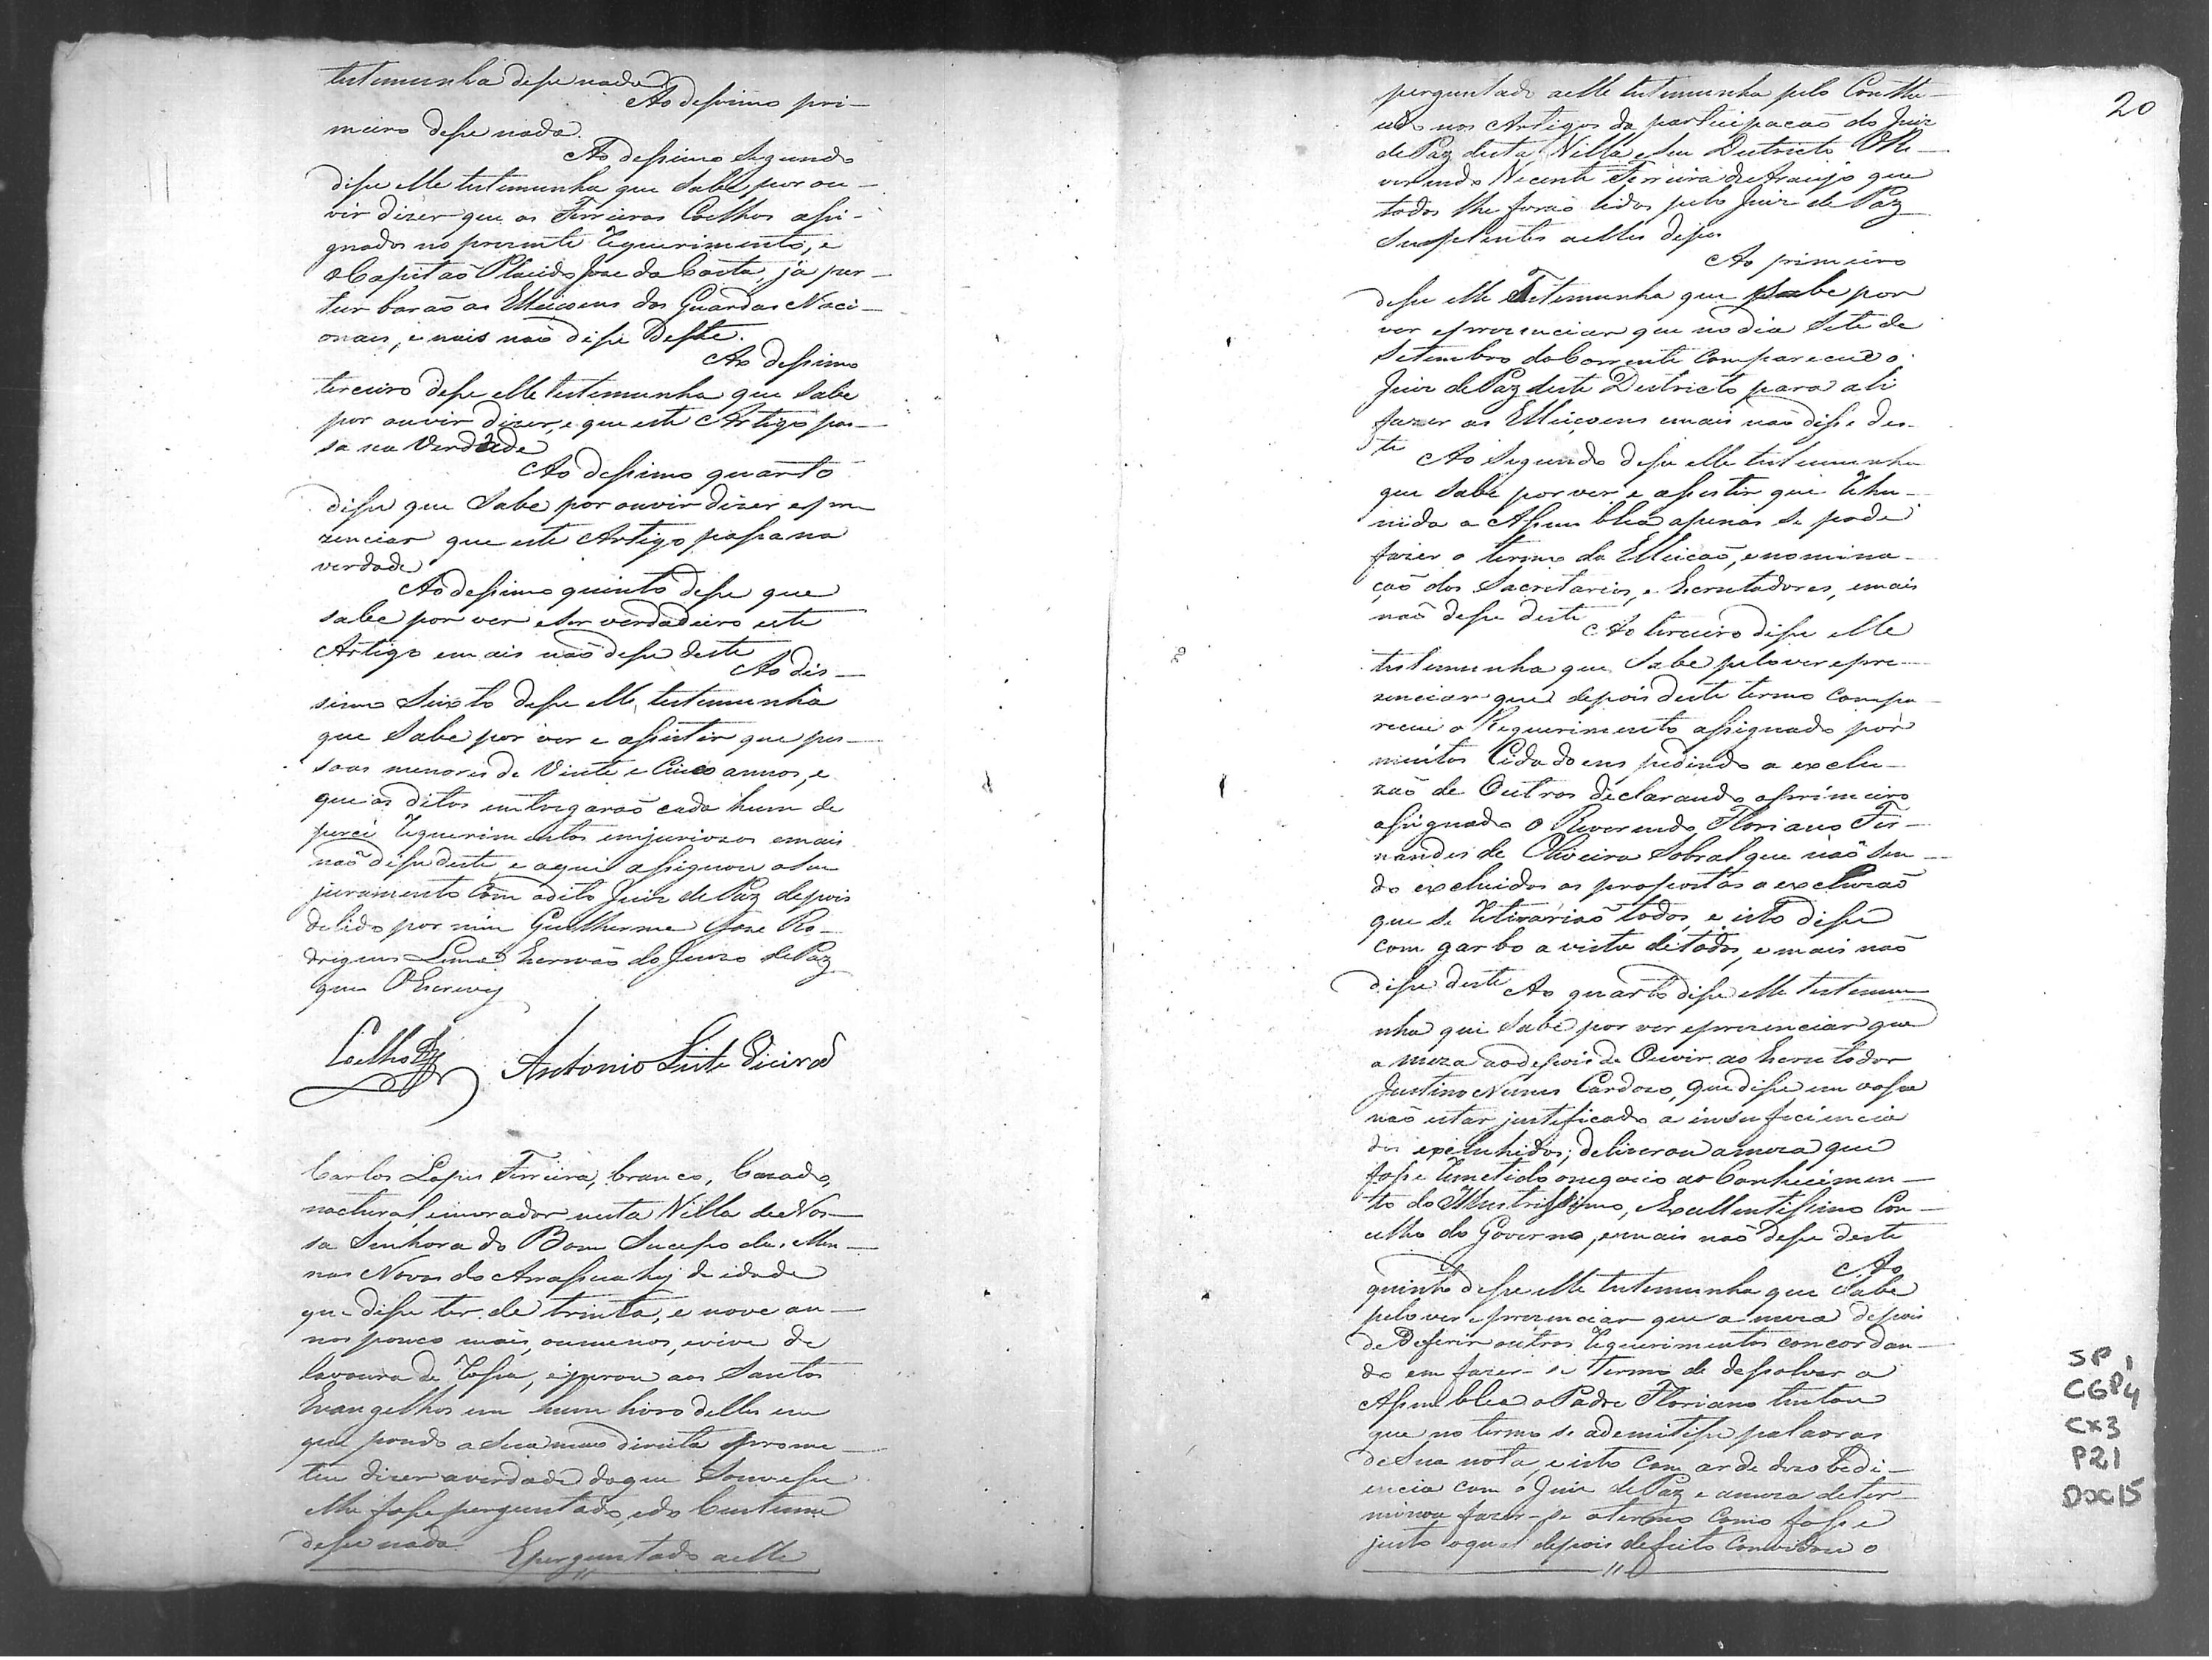 testemunha dise nada
Ao desimo pri-
meiro dise nada.
Ao desimo Segundo
dise elle testemunha que Sabe por ou-
vir dizer que os Ferreiras Coelhos asi-
gnados no prezente Requerimento, e
o Capitaõ Placido Jose da Costa, já per-
turbaraõ as Elleiçoens das Guardas Naci-
onais, e mais naõ dise deste.
Ao desimo
terceiro dise elle testemunha que Sabe
por ouvir dizer, e que este Artigo pas-
sa na Verdade
Ao desimo quarto
dise que Sabe por ouvir dizer e pre
zenciar que este Artigo pasa na
verdade
Ao desimo quinto dise que
sabe por ver e Ser verdadeiro este
Artigo e mais naõ dise deste
Ao des-
simo Seixto dise elle testemunha
que Sabe por ver e asistir que pes-
soas menores de Vinte e Cinco annos, e
que os ditos entregaraõ cada hum de
perci Requerimentos injuriozos e mais
naõ dise deste, e aqui asignou o seu
juramento Com o dito Juiz de Paz depois
de lido por mim Guilherme Jose Ro-
drigues Lima Escrivaõ do Juizo de Paz
que O Escrevy
Coelho Antonio Leite Vieira
Carlos Lopes Ferreira, branco, Cazado,
nactural, e morador nesta Villa de Nos-
sa Senhora do Bom Suceso de Mi-
nas Novas do Arasuahy de idade
que dise ter de trinta, e nove an-
nos pouco mais, ou menos, e vive de
lavoura de Rosa, e jurou aos Santos
Evangelhos em hum livro delles em
que pondo a Sua maõ direita e prome-
teu dizer a verdade do que Soubese
e lhe fose perguntado, e do Custume
dise nada. E perguntado a elle
20
perguntado a elle testemunha pelo Conthe-
udo nos Artigos da participacaõ do Juiz
de Paz desta Villa e Seu Destricto O Re-
verendo Vicente Ferreira de Araujo que
todos lhe foraõ lidos pelo Juiz de Paz
Suplente a elles dise
Ao primeiro
dise elle Testemunha que Sabe por
ver e prezenciar que no dia Sete de
Setembro do Corrente Compareceu o
Juiz de Paz deste Destricto para ali
fazer as Elleiçoens e mais naõ dise des-
te
Ao Segundo dise elle testemunha
que Sabe por ver e asistir que Rehu-
nida a Asemblea apenas se pode
fazer o termo da Elleicaõ, e nomina-
çaõ dos Sacretarios, e Escrutadores, e mais
naõ dise deste
Ao terceiro dise elle
testemunha que Sabe pelo ver e pre-
zenciar que depois deste termo Compa-
receu o Requerimento asignado por
muitos Cidadoens pedindo a exclu-
zaõ de Outros declarando o primeiro
asignado o Reverendo Floriano Fer-
nandes de Oliveira Sobral que naõ Sen-
do excluidos os propostos a excluzaõ
que Se Retirariaõ todos, e isto dise
com garbo a vista de todos, e mais naõ
dise deste
Ao quarto dise elle testemu
nha que Sabe por ver e prezenciar que
a meza ao depois de Ouvir ao Escrutador
Justino Nunes Cardozo, que dise em voz
naõ estar justificado a insuficiencia
dos expeluhidos; deliverou a meza que
fose Remetido o negocio ao Conhecimen-
to do Illustrisimo, e Excellentisimo Con-
celho do Governo, e mais naõ dise deste
Ao
quinto dise elle testemunha que Sabe
pelo ver e prezenciar que a meza depois
de Deferir outros Requerimentos concordan-
do em fazer-se Termo de desolver a
Asemblea o Padre Floriano tentou
que no termo se ademitise palavras
de Sua nota, e isto Com ar de dezobedi-
encia com o Juiz de Paz e a meza deter-
minou fazer-se o termo Como fose
justo o qual depois de feito Convidou o
SP 1
CGP4
CX3
P21
DOC15